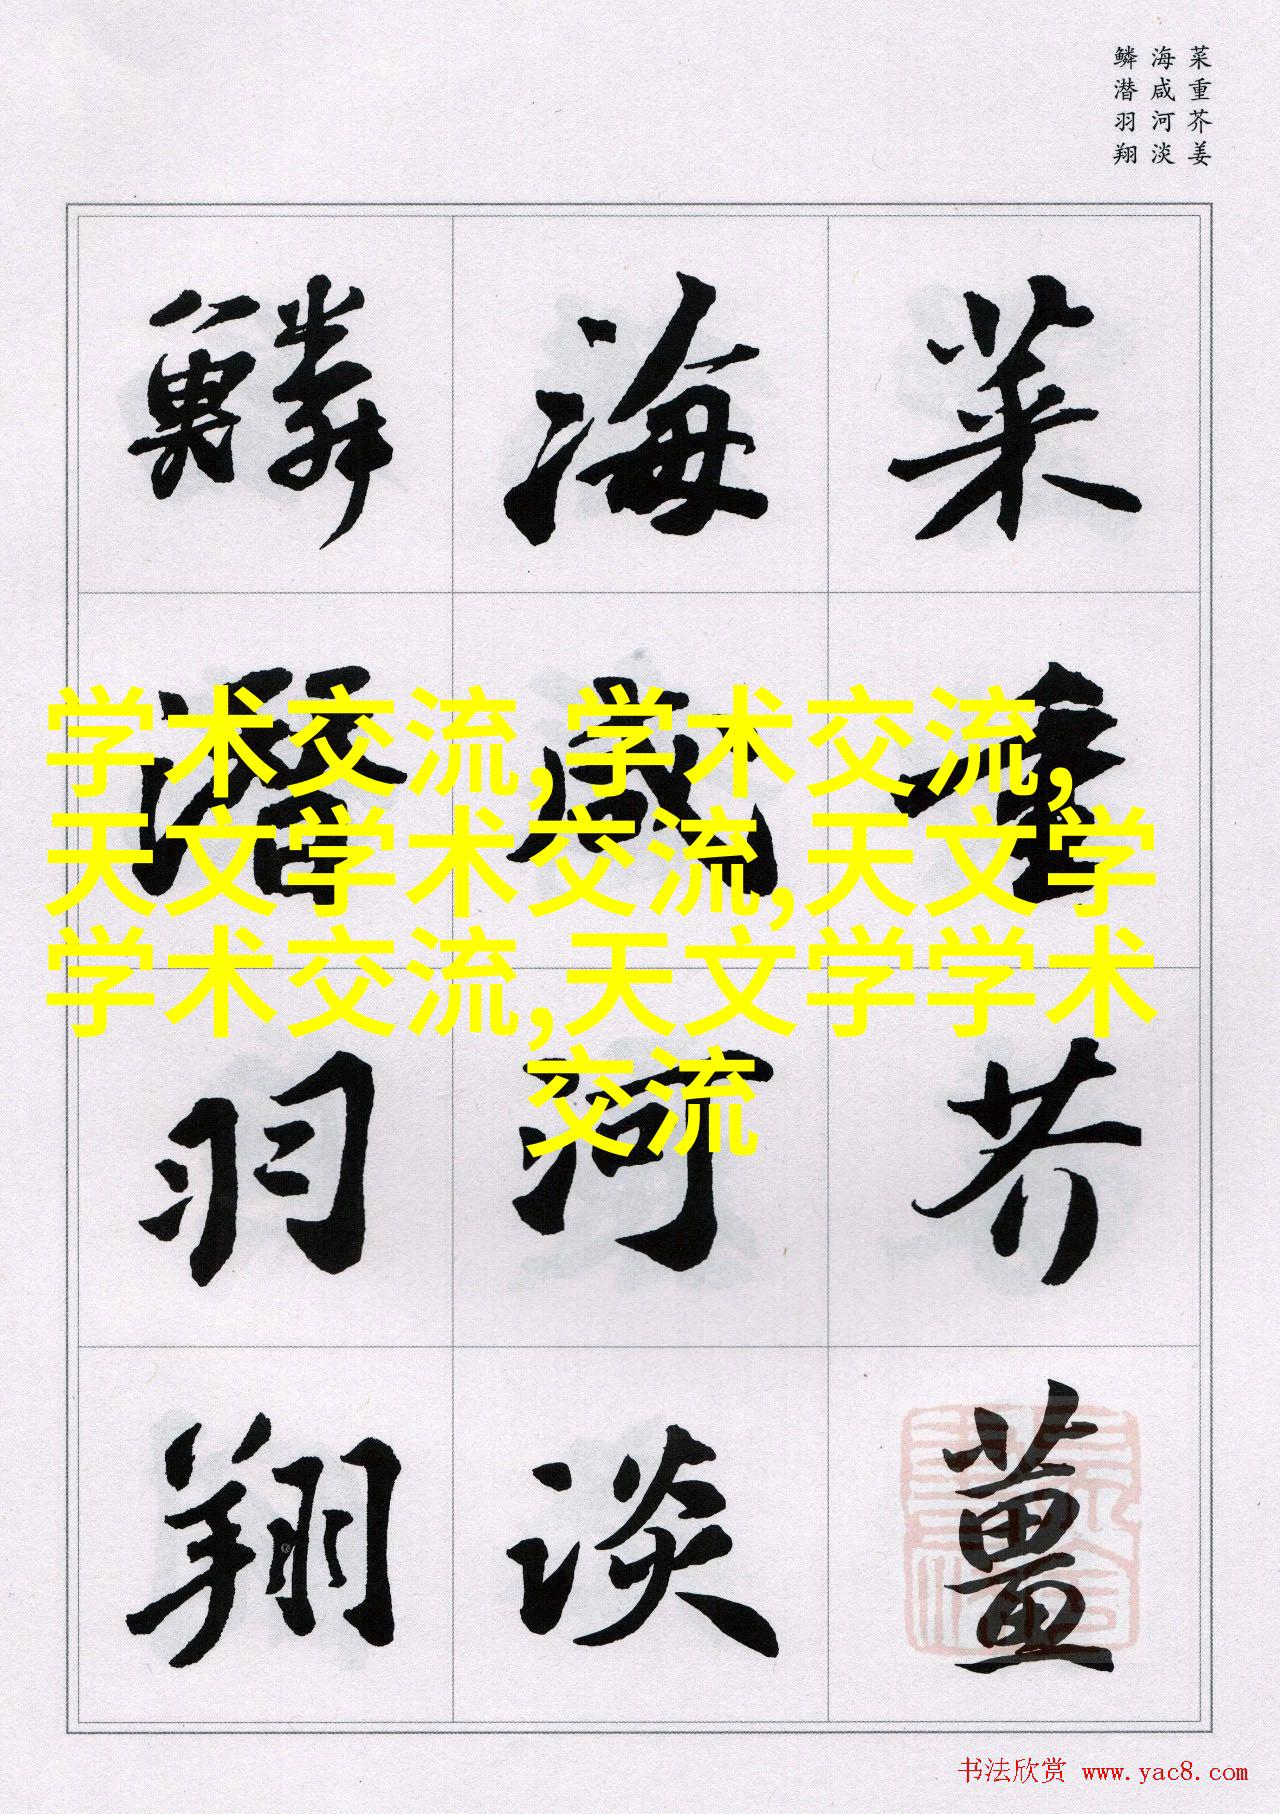 菜重芥姜
海咸河淡
鳞潜羽翔
菜重芥薑
海咸河淡
鳞潛羽翔
学术交流,学术交流,
天文学术交流,天文学
学术交流,天文学学术
交流
书法欣赏 www.yac8.com